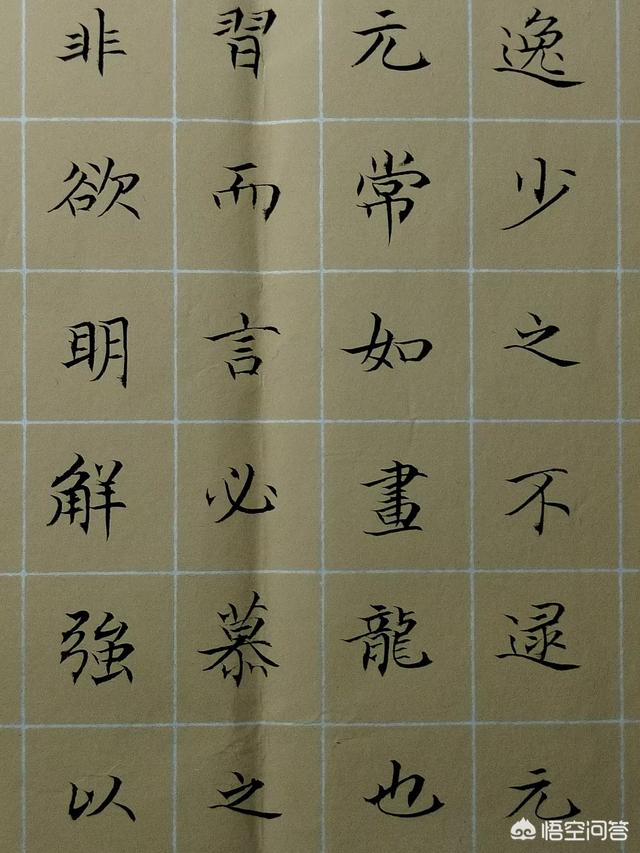 逸少之不逮元
元常如畫龍也
習而言必慕之
非欲明觧強以
悟空问答